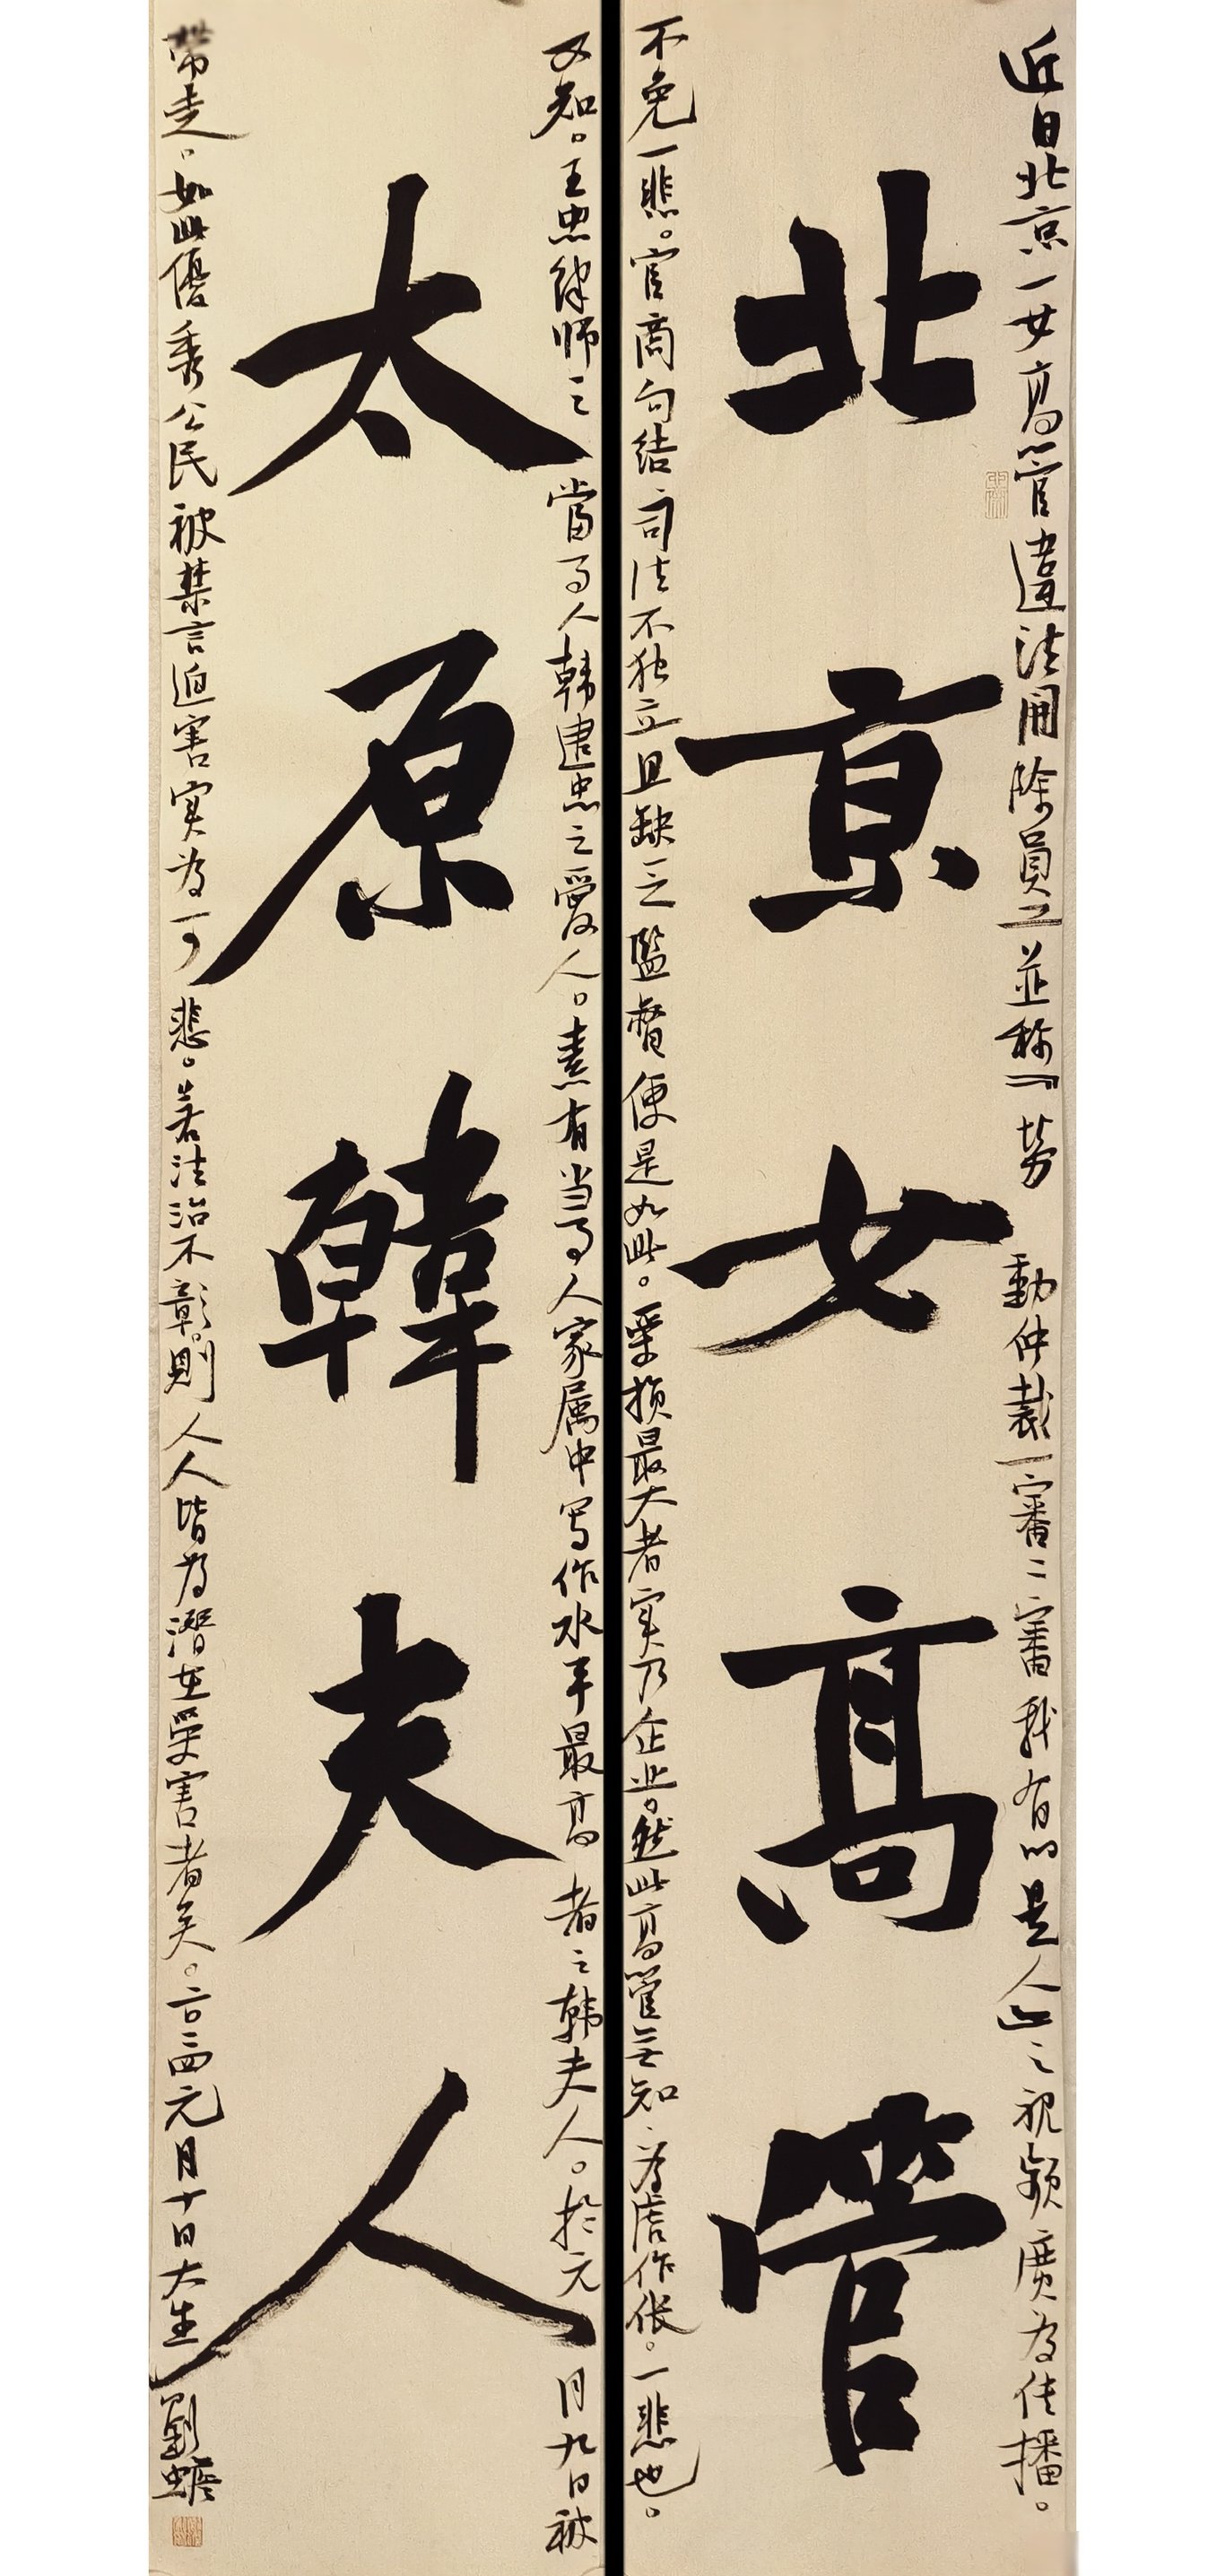 近日北京一女高管違法開除員工並称『勞動仲裁一審二審我有的是人』之視頻廣為传播。
北京女高管
不免一悲。官商勾结司法不独立且缺之監督便是如此。受損最大者实乃企业。然此高管無知、为虐作伥。一悲也。
又知。王忠律师之當事人韩建忠之愛人。素有当事人家属中写作水平最高者之韩夫人。於元月九日被
太原韓夫人
带走。如此優秀公民被禁言迫害实为可悲。若法治不彰則人人皆为潛在受害者矣。二〇二四元月十日大生劉蟾